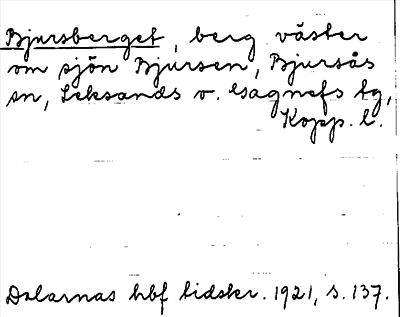 Bjursberget, berg väster
om sjön Bjursen, Bjursås
sn, Leksands o. Gagnefs tg,
Kopp. l.
Dalarnas hbf tidskr. 1921, s. 137.